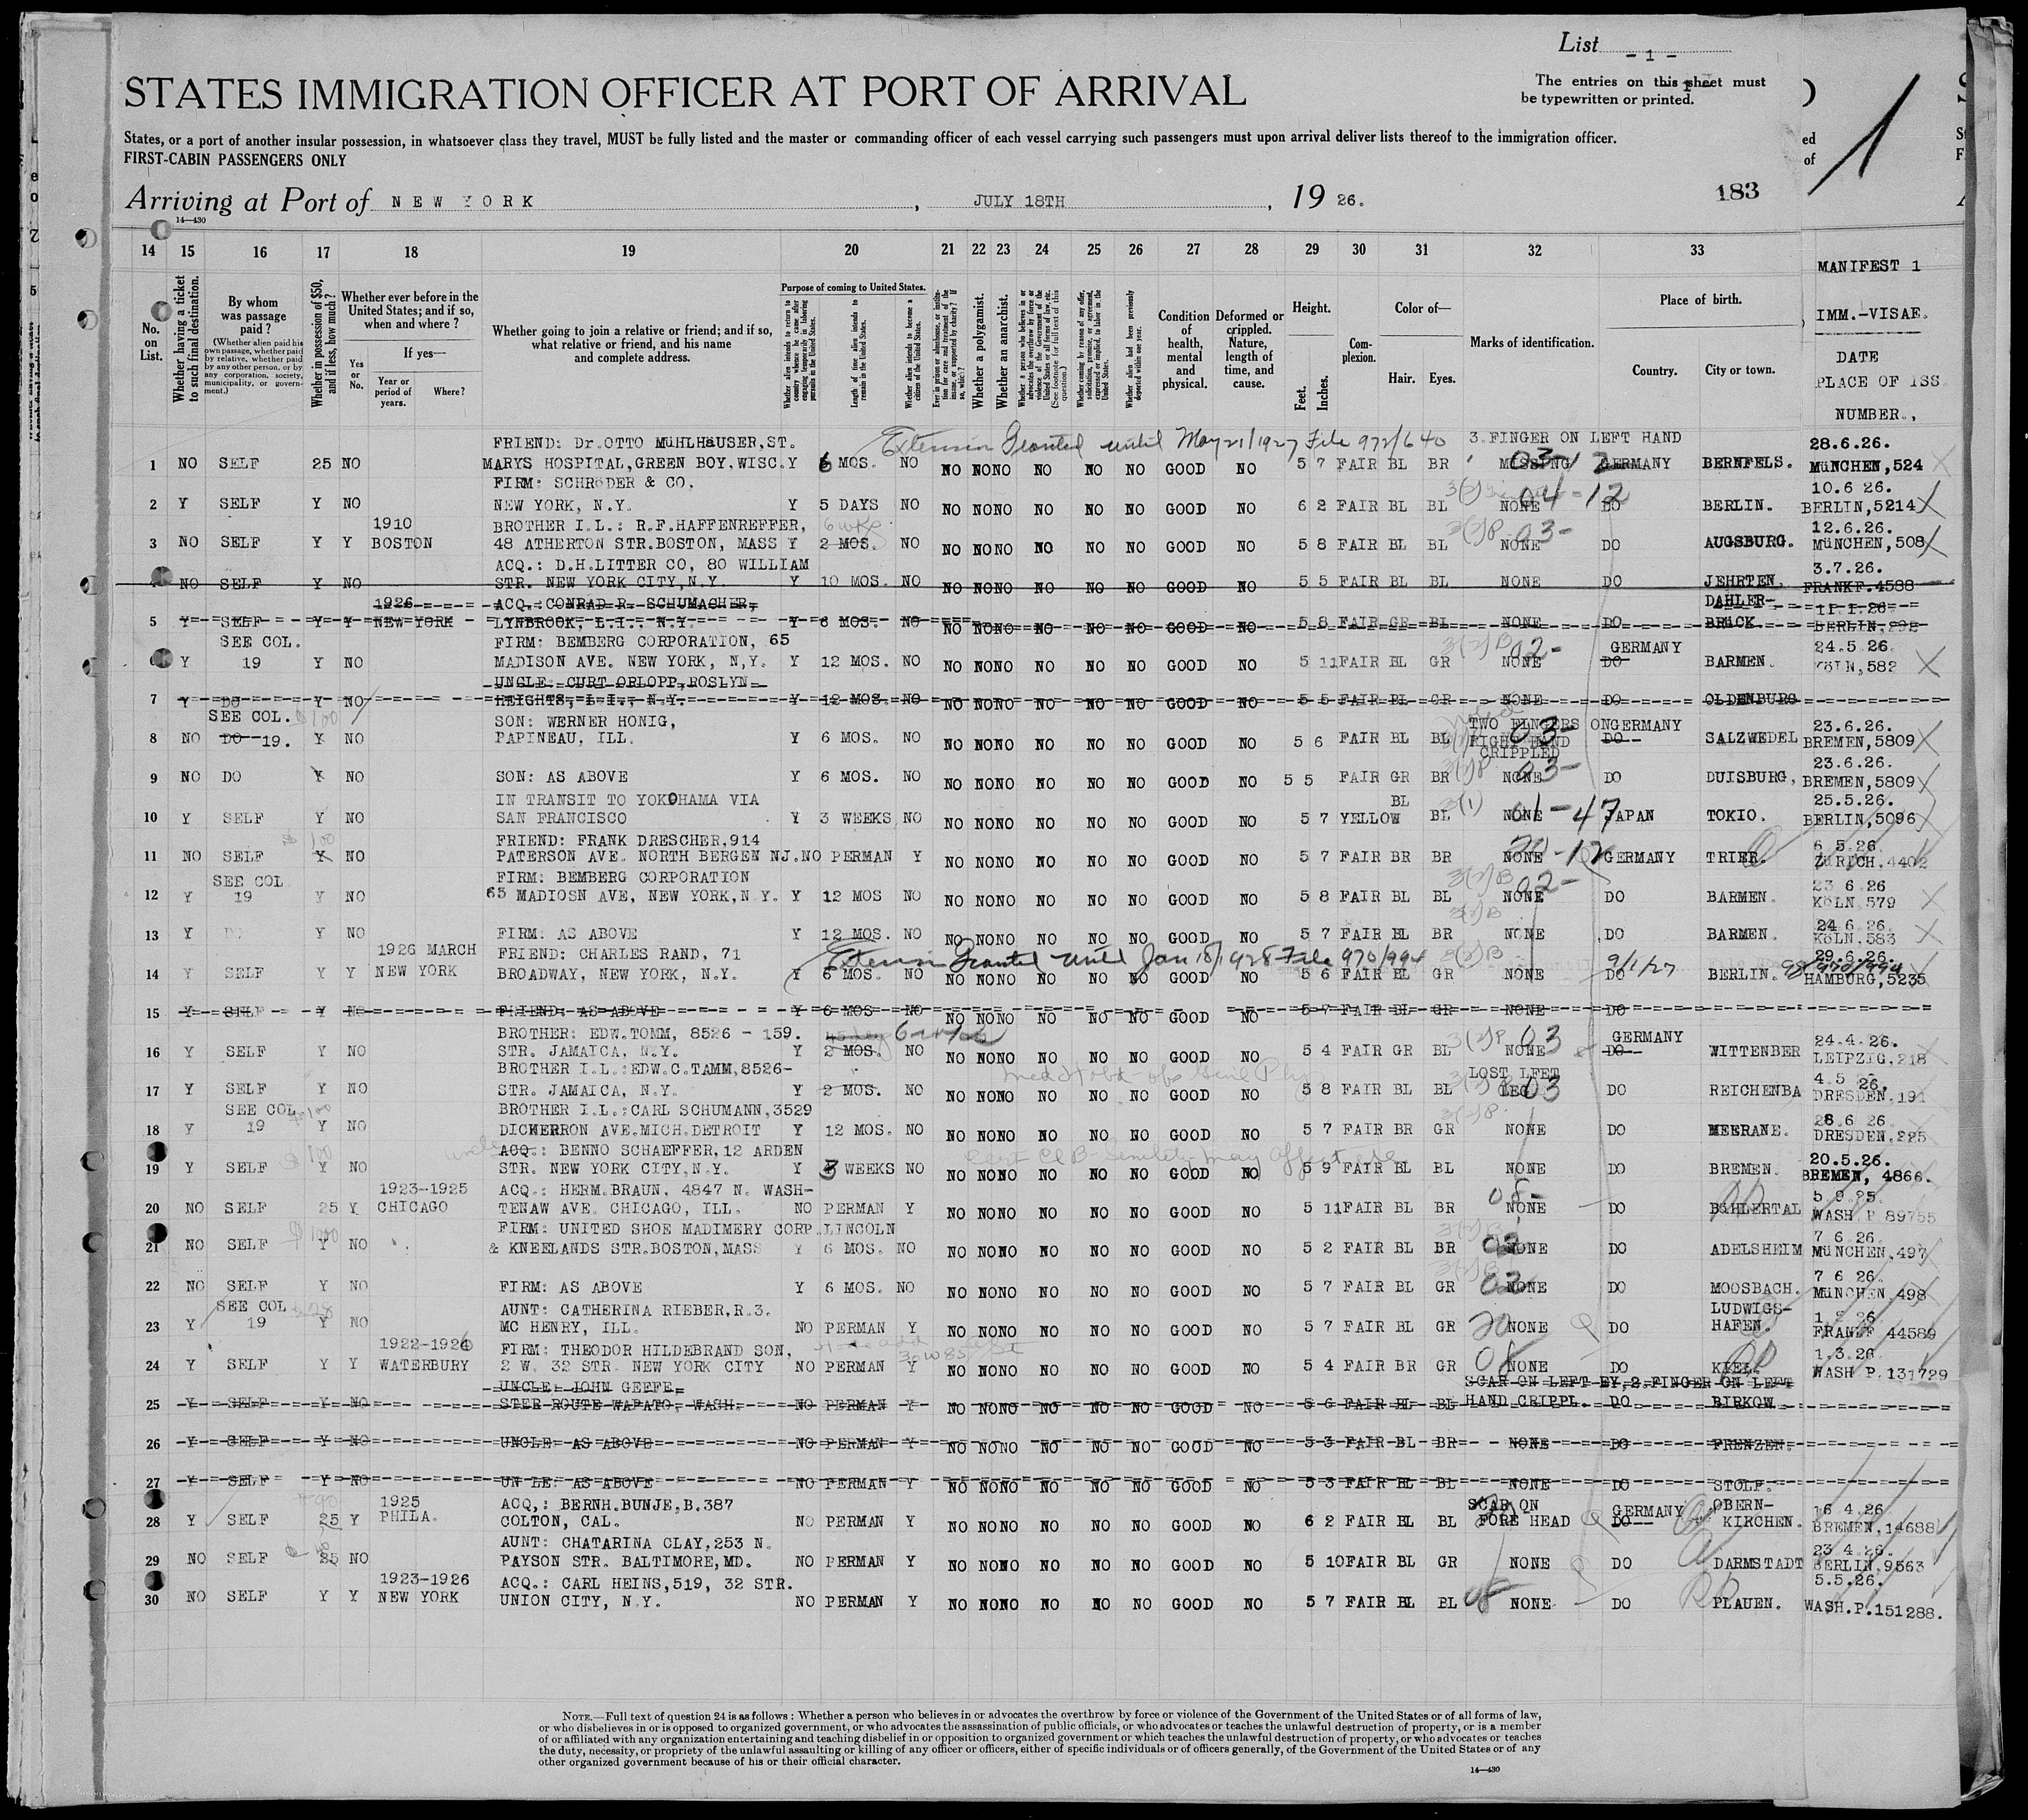 List - 1 -
STATES IMMIGRATION OFFICER AT PORT OF ARRIVAL
The entries on this sheet must
be typewritten or printed.
States, or a port of another insular possession, in whatsoever class they travel, MUST be fully listed and the master or commanding officer of each vessel carrying such passengers must upon arrival deliver lists thereof to the immigration officer.
FIRST-CABIN PASSENGERS ONLY
Arriving at Port of NEW YORK, JULY 18TH, 1926.
183
1
14—430
14 15 16 17 18 19 20 21 22 23 24 25 26 27 28 29 30 31 32 33
No. on List.
Whether having a ticket to such final destination.
By whom was passage paid?
(Whether alien paid his own passage, whether paid by relative, whether paid by any other person, or by any corporation, society, municipality, or government.)
Whether in possession of $50, and if less, how much?
Whether ever before in the United States; and if so, when and where?
Yes or No.
If yes—
Year or period of years.
Where?
Whether going to join a relative or friend; and if so, what relative or friend, and his name and complete address.
Purpose of coming to United States.
Whether alien intends to return to country whence he came after engaging temporarily in laboring pursuits in the United States.
Length of time alien intends to remain in the United States.
Whether alien intends to become a citizen of the United States.
Ever in prison or almshouse, or institution for care and treatment of the insane, or supported by charity? If so, which?
Whether a polygamist.
Whether an anarchist.
Whether a person who believes in or advocates the overthrow by force or violence of the Government of the United States or all forms of law, etc. (See footnote for full text of this question.)
Whether coming by reason of any offer, solicitation, promise, or agreement, expressed or implied, to labor in the United States.
Whether alien had been previously deported within one year.
Condition of health, mental and physical.
Deformed or crippled. Nature, length of time, and cause.
Height.
Feet. Inches.
Complexion.
Color of—
Hair. Eyes.
Marks of identification.
Place of birth.
Country. City or town.
MANIFEST 1
IMM.-VISAE.
DATE
PLACE OF ISS
NUMBER.,
FRIEND: Dr.OTTO MüHLHäUSER,ST. Extension Granted until May 21/1927 File 972/640 3.FINGER ON LEFT HAND 28.6.26.
1 NO SELF 25 NO MARYS HOSPITAL,GREEN BOY,WISC.Y 6 MOS. NO NO NO NO NO NO NO GOOD NO 5 7 FAIR BL BR MISSING GERMANY BERNFELS. MüNCHEN,524
FIRM: SCHRöDER & CO. 10.6 26.
2 Y SELF Y NO NEW YORK, N.Y. Y 5 DAYS NO NO NO NO NO NO NO GOOD NO 6 2 FAIR BL BL NONE 04-12 DO BERLIN. BERLIN,5214
1910 BROTHER I.L.: R.F.HAFFENREFFER, 12.6.26.
3 NO SELF Y Y BOSTON 48 ATHERTON STR.BOSTON, MASS Y 2 MOS. NO NO NO NO NO NO NO GOOD NO 5 8 FAIR BL BL NONE 03- DO AUGSBURG. MüNCHEN,508
ACQ.: D.H.LITTER CO, 80 WILLIAM 3.7.26.
4 NO SELF Y NO STR. NEW YORK CITY,N.Y. Y 10 MOS. NO NO NO NO NO NO NO GOOD NO 5 5 FAIR BL BL NONE DO JEHRTEN. FRANKF.4588
1926 ACQ.:CONRAD R. SCHUMACHER, DAHLER- 11.1.26
5 Y SELF Y Y NEW YORK LYNBROOK, L.I., N.Y. Y 6 MOS. NO NO NO NO NO NO NO GOOD NO 5 8 FAIR GR BL NONE DO BRüCK. BERLIN,292
SEE COL. FIRM: BEMBERG CORPORATION, 65 GERMANY 24.5.26.
6 Y 19 Y NO MADISON AVE. NEW YORK, N,Y. Y 12 MOS. NO NO NO NO NO NO NO GOOD NO 5 11 FAIR BL GR NONE 02- DO BARMEN. KöLN,582
UNCLE: CURT ORLOPP,ROSLYN
7 Y DO Y NO HEIGHTS, L.I., N.Y. Y 12 MOS. NO NO NO NO NO NO NO GOOD NO 5 5 FAIR BL GR NONE DO OLDENBURG
SEE COL. SON: WERNER HONIG, TWO FINGERS ON GERMANY 23.6.26.
8 NO DO 19. Y NO PAPINEAU, ILL. Y 6 MOS. NO NO NO NO NO NO NO GOOD NO 5 6 FAIR BL BL RIGHT HAND CRIPPLED 03- DO SALZWEDEL BREMEN,5809
23.6.26.
9 NO DO Y NO SON: AS ABOVE Y 6 MOS. NO NO NO NO NO NO NO GOOD NO 5 5 FAIR GR BR NONE 03- DO DUISBURG, BREMEN,5809
IN TRANSIT TO YOKOHAMA VIA BL 25.5.26.
10 Y SELF Y NO SAN FRANCISCO Y 3 WEEKS NO NO NO NO NO NO NO GOOD NO 5 7 YELLOW BL NONE 01-47 JAPAN TOKIO. BERLIN,5096
FRIEND: FRANK DRESCHER,914 6 5.26.
11 NO SELF Y NO PATERSON AVE. NORTH BERGEN NJ.NO PERMAN Y NO NO NO NO NO NO GOOD NO 5 7 FAIR BR BR NONE GERMANY TRIER. ZüRICH,4402
SEE COL FIRM: BEMBERG CORPORATION 23 6.26
12 Y 19 Y NO 65 MADIOSN AVE, NEW YORK,N.Y. Y 12 MOS NO NO NO NO NO NO NO GOOD NO 5 8 FAIR BL BL NONE 02- DO BARMEN. KöLN 579
24 6.26.
13 Y DO Y NO FIRM: AS ABOVE Y 12 MOS. NO NO NO NO NO NO NO GOOD NO 5 7 FAIR BL BR NONE DO BARMEN. KöLN,583
1926 MARCH FRIEND: CHARLES RAND, 71 Extension Granted until Jan 18/1928 File 970/994 9/1/27 29.6.26.
14 Y SELF Y Y NEW YORK BROADWAY, NEW YORK, N.Y. Y 6 MOS. NO NO NO NO NO NO NO GOOD NO 5 6 FAIR BL GR NONE DO BERLIN. 970/994 HAMBURG,5235
15 Y SELF Y NO FRIEND: AS ABOVE Y 6 MOS NO NO NO NO NO NO NO GOOD NO 5 7 FAIR BL GR NONE DO
BROTHER: EDW.TOMM, 8526 - 159. GERMANY 24.4.26.
16 Y SELF Y NO STR. JAMAICA, N.Y. Y 2 MOS. NO NO NO NO NO NO NO GOOD NO 5 4 FAIR GR BL NONE 03 DO WITTENBER LEIPZIG,218
BROTHER I.L.:EDW.C.TAMM,8526- LOST LFET 4.5 26.
17 Y SELF Y NO STR. JAMAICA, N.Y. Y 2 MOS. NO NO NO NO NO NO NO GOOD NO 5 8 FAIR BL BL LEG 03 DO REICHENBA DRESDEN,191
SEE COL BROTHER I.L.:CARL SCHUMANN,3529 28.6 26
18 Y 19 Y NO DICKERRON AVE.MICH.DETROIT Y 12 MOS. NO NO NO NO NO NO NO GOOD NO 5 7 FAIR BR GR NONE DO MEERANE. DRESDEN,225
uncle ACQ.: BENNO SCHAEFFER,12 ARDEN 20.5.26.
19 Y SELF Y NO STR. NEW YORK CITY,N.Y. Y 3 WEEKS NO NO NO NO NO NO NO GOOD NO 5 9 FAIR BL BL NONE DO BREMEN. BREMEN, 4866.
1923-1925 ACQ.: HERM.BRAUN, 4847 N. WASH- 5 9.25.
20 NO SELF 25 Y CHICAGO TENAW AVE. CHICAGO, ILL. NO PERMAN Y NO NO NO NO NO NO GOOD NO 5 11 FAIR BL BR NONE 08- DO BüHLERTAL WASH P 89755
FIRM: UNITED SHOE MADIMERY CORP.LINCOLN 7 6.26.
21 NO SELF Y NO & KNEELANDS STR.BOSTON,MASS Y 6 MOS. NO NO NO NO NO NO NO GOOD NO 5 2 FAIR BL BR NONE DO ADELSHEIM MüNCHEN,497
7 6 26.
22 NO SELF Y NO FIRM: AS ABOVE Y 6 MOS. NO NO NO NO NO NO NO GOOD NO 5 7 FAIR BL GR NONE DO MOOSBACH. MüNCHEN,498
SEE COL AUNT: CATHERINA RIEBER,R.3. LUDWIGS-
23 Y 19 Y NO MC HENRY, ILL. NO PERMAN Y NO NO NO NO NO NO GOOD NO 5 7 FAIR BL GR 20 NONE DO HAFEN. FRANKF 44589
1922-1926 FIRM: THEODOR HILDEBRAND SON, 1.3.26.
24 Y SELF Y Y WATERBURY 2 W. 32 STR. NEW YORK CITY NO PERMAN Y NO NO NO NO NO NO GOOD NO 5 4 FAIR BR GR 08 NONE DO KIEL. WASH P.131729
UNCLE: JOHN GEEFE, SCAR ON LEFT EY,2.FINGER ON LEFT
25 Y SELF Y NO STER ROUTE WAPATO, WASH. NO PERMAN Y NO NO NO NO NO NO GOOD NO 5 6 FAIR BL BL HAND CRIPPL. DO BIRKOW
26 Y SELF Y NO UNCLE: AS ABOVE NO PERMAN Y NO NO NO NO NO NO GOOD NO 5 3 FAIR BL BR NONE DO FRENZEN.
27 Y SELF Y NO UN LE: AS ABOVE NO PERMAN Y NO NO NO NO NO NO GOOD NO 5 3 FAIR BL BL NONE DO STOLP.
1925 ACQ,: BERNH.BUNJE,B.387 SCAR ON GERMANY OBERN- 16 4.26
28 Y SELF 25 Y PHILA. COLTON, CAL. NO PERMAN Y NO NO NO NO NO NO GOOD NO 6 2 FAIR BL BL FORE HEAD DO KIRCHEN. BREMEN,14688
AUNT: CHATARINA CLAY,253 N. 23 4.26.
29 NO SELF 25 NO PAYSON STR. BALTIMORE,MD. NO PERMAN Y NO NO NO NO NO NO GOOD NO 5 10 FAIR BL GR NONE DO DARMSTADT BERLIN,9563
1923-1926 ACQ.: CARL HEINS,519, 32 STR. 5.5.26.
30 NO SELF Y Y NEW YORK UNION CITY, N.Y. NO PERMAN Y NO NO NO NO NO NO GOOD NO 5 7 FAIR BL BL 08 NONE DO PLAUEN. WASH.P.151288.
NOTE.—Full text of question 24 is as follows: Whether a person who believes in or advocates the overthrow by force or violence of the Government of the United States or of all forms of law,
or who disbelieves in or is opposed to organized government, or who advocates the assassination of public officials, or who advocates or teaches the unlawful destruction of property, or is a member
of or affiliated with any organization entertaining and teaching disbelief in or opposition to organized government or which teaches the unlawful destruction of property, or who advocates or teaches
the duty, necessity, or propriety of the unlawful assaulting or killing of any officer or officers, either of specific individuals or of officers generally, of the Government of the United States or of any
other organized government because of his or their official character.
14—430